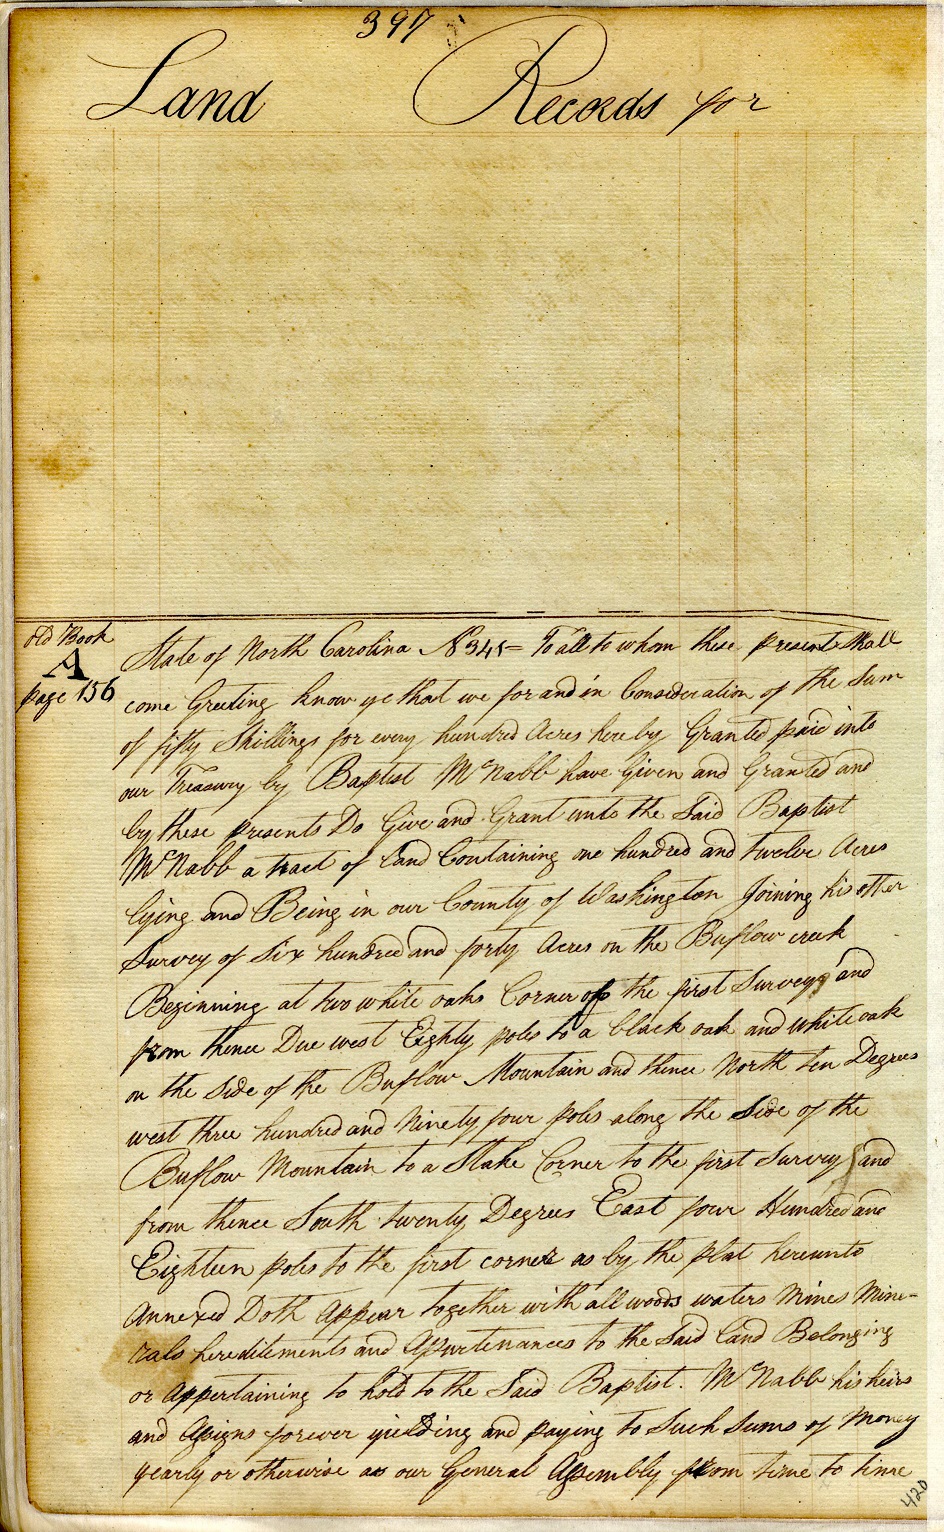 397
Land Records for
old Book
A
page 156
State of North Carolina No 345 = To all to whom these presents Shall
come Greeting Know ye that we for and in Consideration of the Sum
of fifty Shillings for every hundred Acres hereby Granted paid into
our Treasury by Baptist McNabb have Given and Granted and
by these presents Do Give and Grant unto the Said Baptist
McNabb a tract of Land Containing one hundred and twelve Acres
lying and Being in our County of Washington Joining his other
Survey of Six hundred and forty Acres on the Buflow creek
Beginning at two white oaks Corner of the first Survey and
from thence Due west Eighty poles to a black oak and white oak
on the Side of the Buflow Mountain and thence North ten Degrees
west three hundred and Ninety four poles along the Side of the
Buflow Mountain to a Stake Corner to the first Survey and
from thence South twenty Degrees East four Hundred and
Eighteen poles to the first corner as by the plat hereunto
Annexed Doth Appear together with all woods waters Mines Mine-
rals hereditements and Apurtenances to the Said Land Belonging
or Appertaining to hold to the Said Baptist. McNabb his heirs
and Asigns forever yielding and paying to Such Sums of Money
yearly or otherwise as our General Assembly from time to time
420